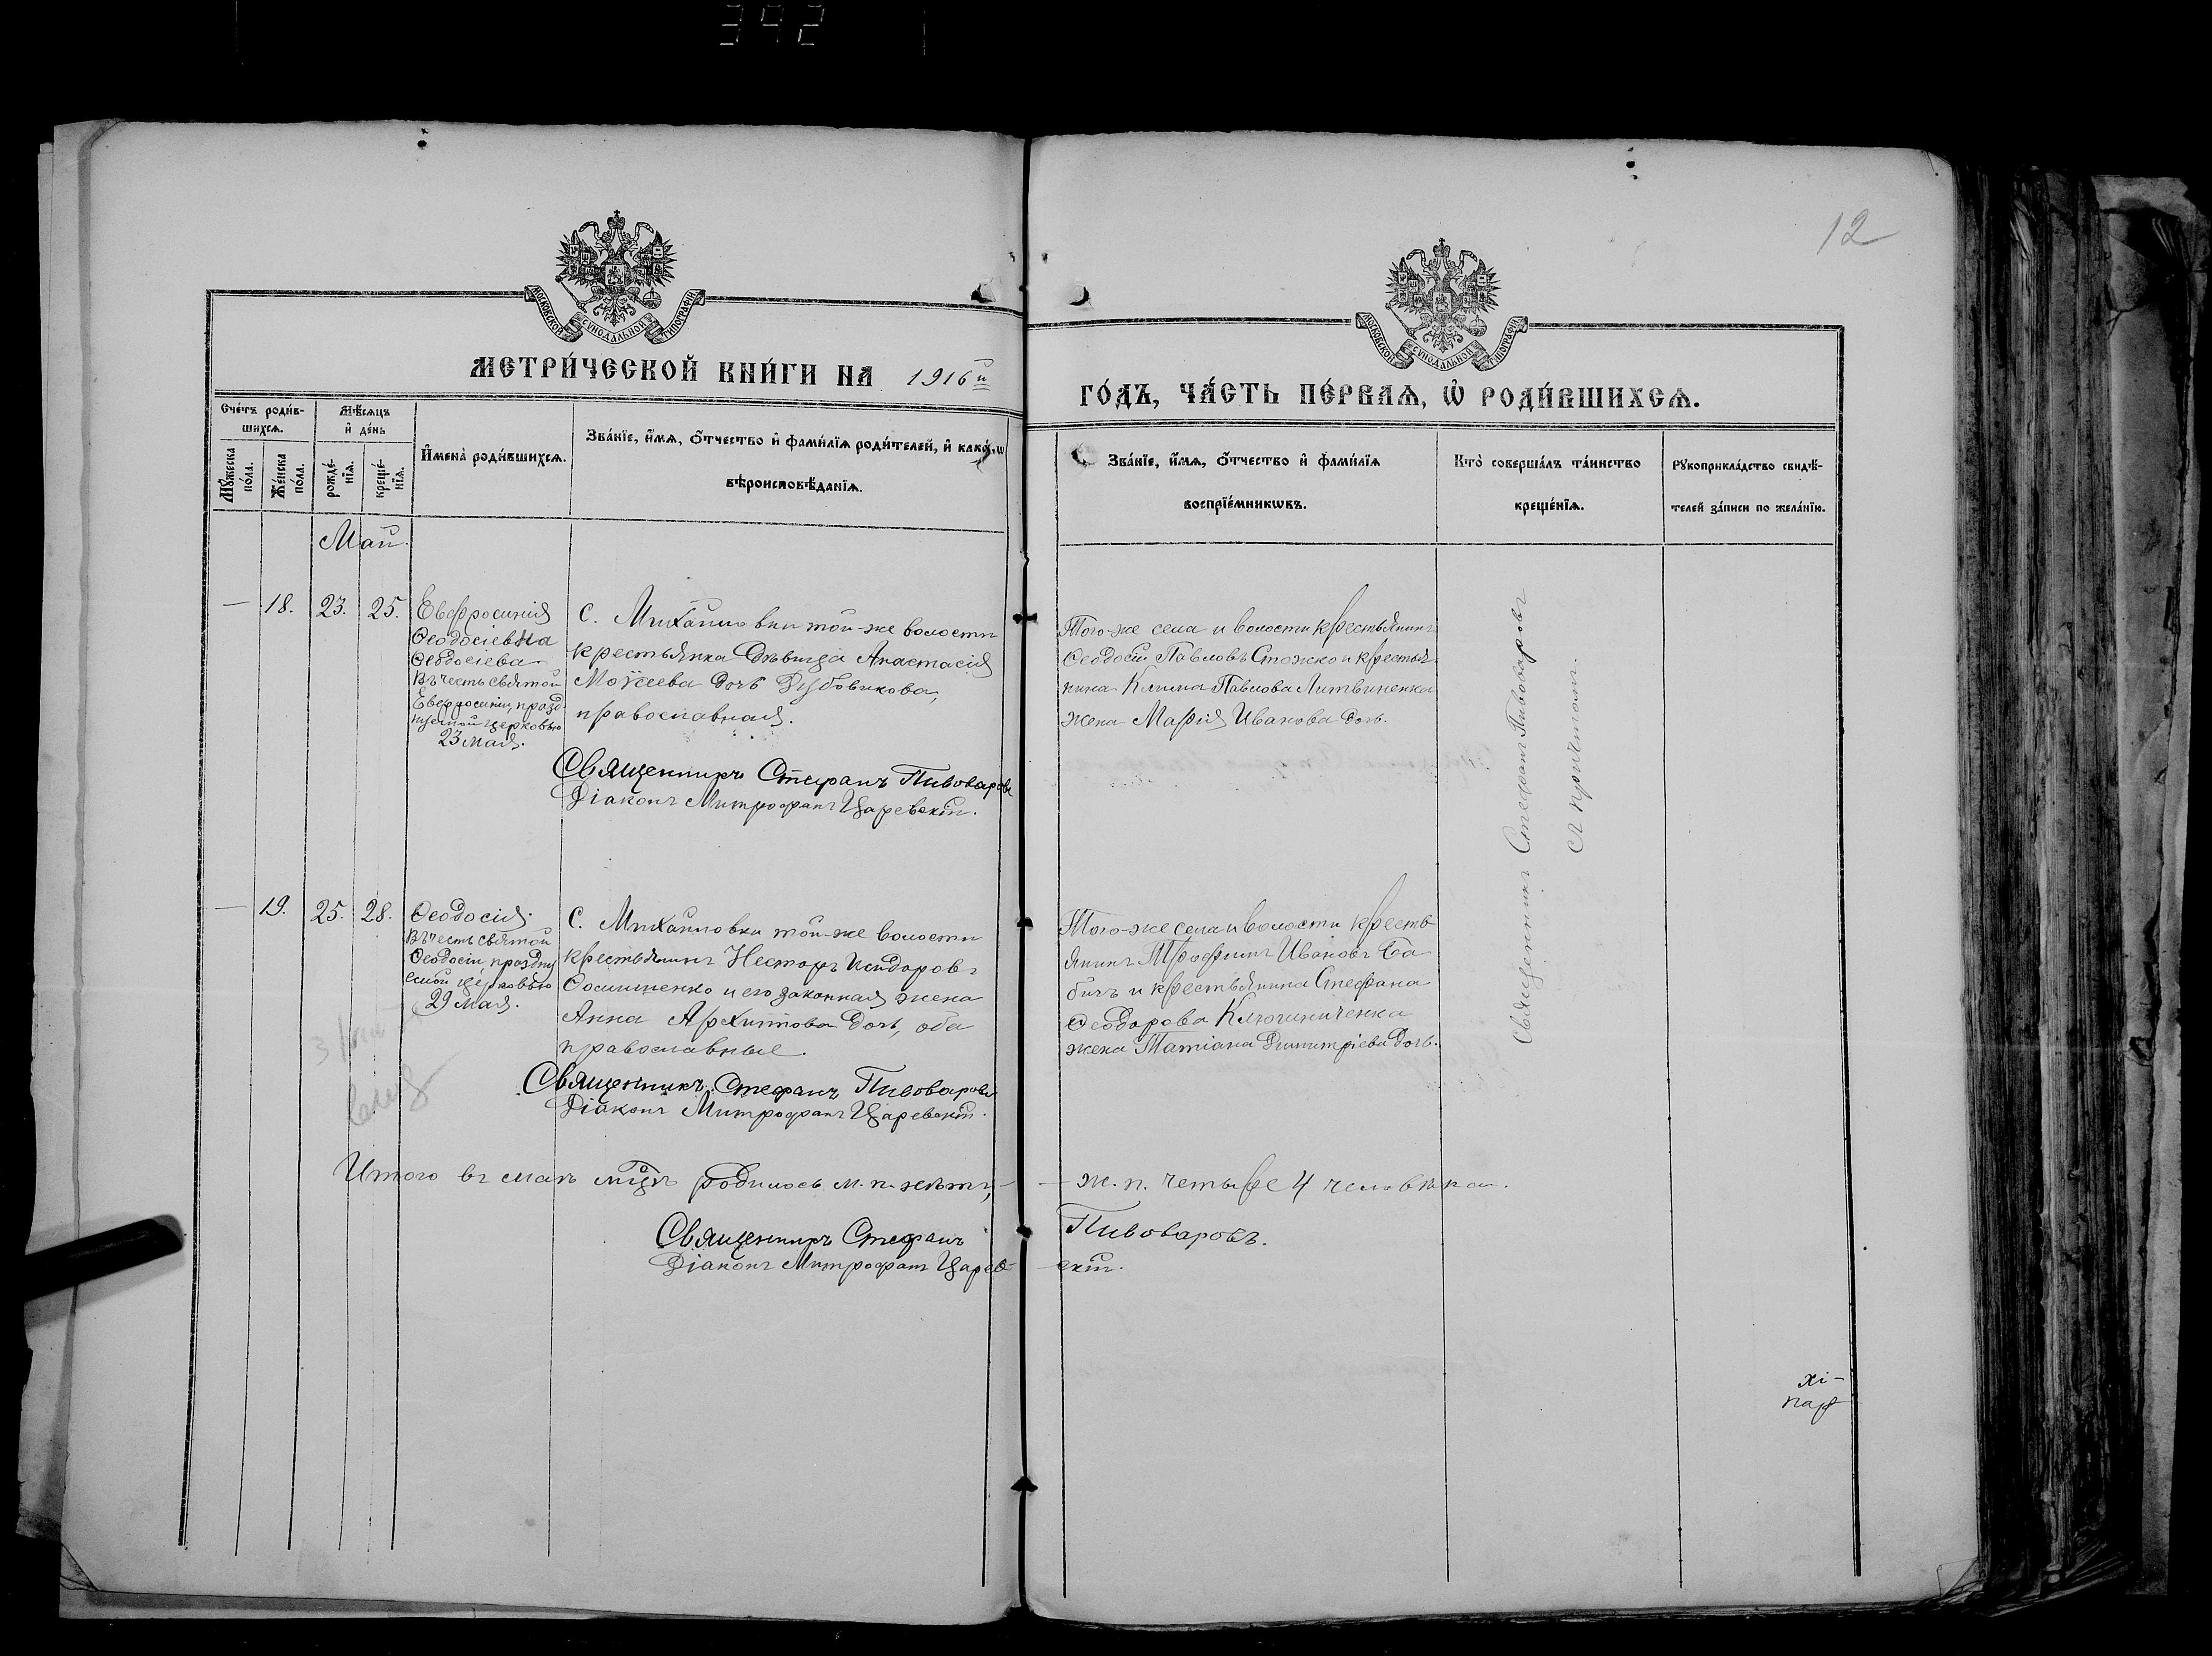 392
12
МОСКОВСКОЙ СѴНОДАЛЬНОЙ ТИПОГРАФІИ
МОСКОВСКОЙ СѴНОДАЛЬНОЙ ТИПОГРАФІИ
МЕТРИ́ЧЕСКОЙ КНИ́ГИ НА 1916й
ГО́ДЪ, ЧА́СТЬ ПЕ́РВАѦ, Ѡ РОДИ́ВШИХСѦ.
Сче́тъ роди́в-
шихсѧ.
Мꙋ́жеска по́ла.
Же́нска по́ла.
Мѣ́сѧцъ
и҆ де́нь
рожде́-
нїѧ.
креще́-
нїѧ.
И҆мена̀ роди́вшихсѧ.
Зва́нїе, и҆́мѧ, ѻ҆́тчество и҆ фами́лїѧ роди́телей, и҆ како́гѡ
вѣроисповѣ́данїѧ.
Зва́нїе, и҆́мѧ, ѻ҆́тчество и҆ фами́лїѧ
воспрїе́мникѡвъ.
Кто̀ соверша́лъ та́инство
креще́нїѧ.
Рꙋкоприкла́дство свидѣ́-
телей за́писи по жела́нїю.
Май.
— 18. 23. 25.
Евфросинія
Ѳеодосіевна
Ѳеодосіева
Въ честь святой
Евфросиніи, празд
нуемой церковью
23 мая.
С. Михайловки той-же волости
крестьянка дѣвица Анастасія
Моѵсеева дочь
православная.
Священникъ Стефанъ Пивоваровъ
Діаконъ Митрофанъ Царевскій.
Того-же села и волости крестьянинъ
Ѳеодосій Павловъ Стожко и крестья
нина Клима Павлова Литвиненка
жена Марія Иванова дочь.
Священникъ Стефанъ Пивоваровъ
съ причтомъ.
— 19. 25. 28.
Ѳеодосія.
Въ честь святой
Ѳеодосіи празdну
емой церковью
29 мая.
С. Михайловки той-же волости
крестьянинъ Несторъ Исидоровъ
и его законная жена
Анна Архипова дочь, оба
православные.
Священникъ Стефанъ Пивоваровъ
Діаконъ Митрофанъ Царевскій.
Того-же села и волости кресть
янинъ Трофимъ Ивановъ Ба
бичъ и крестьянина Стефана
Ѳеодорова
жена Татіана Димитріева дочь.
Итого въ маѣ мцѣ родилось м. п. нѣтъ, — — ж. п. четыре 4 человѣка.
Священникъ Стефанъ Пивоваровъ.
Діаконъ Митрофанъ Царев- -скій.
хі-
пар